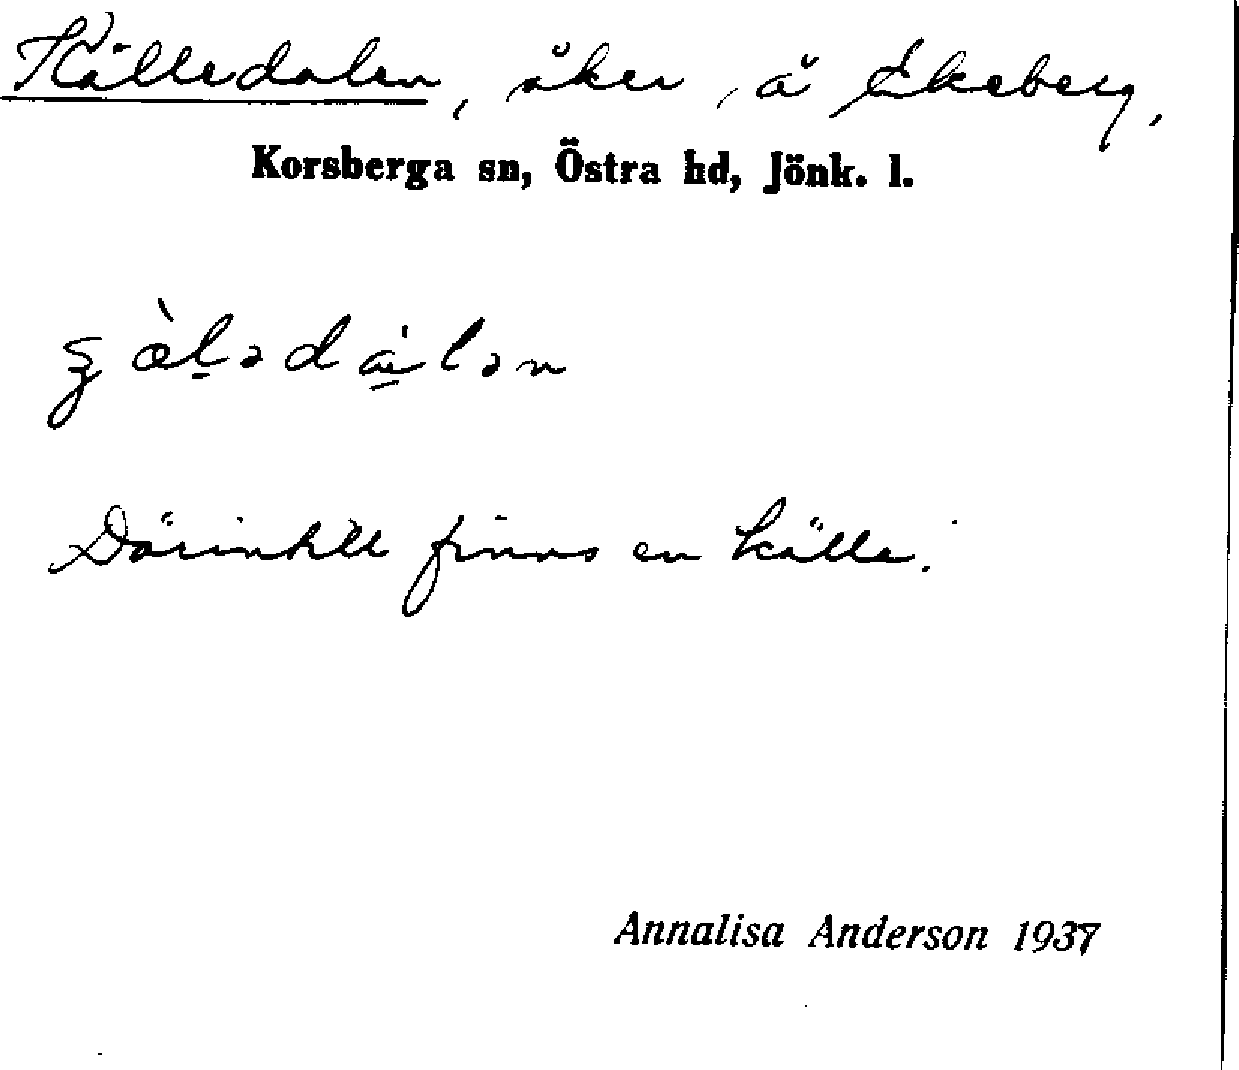 Källedalen, åker, å Ekeberg,
Korsberga sn, Östra hd, Jönk. l.
Därintill finns en källa.
Annalisa Anderson 1937